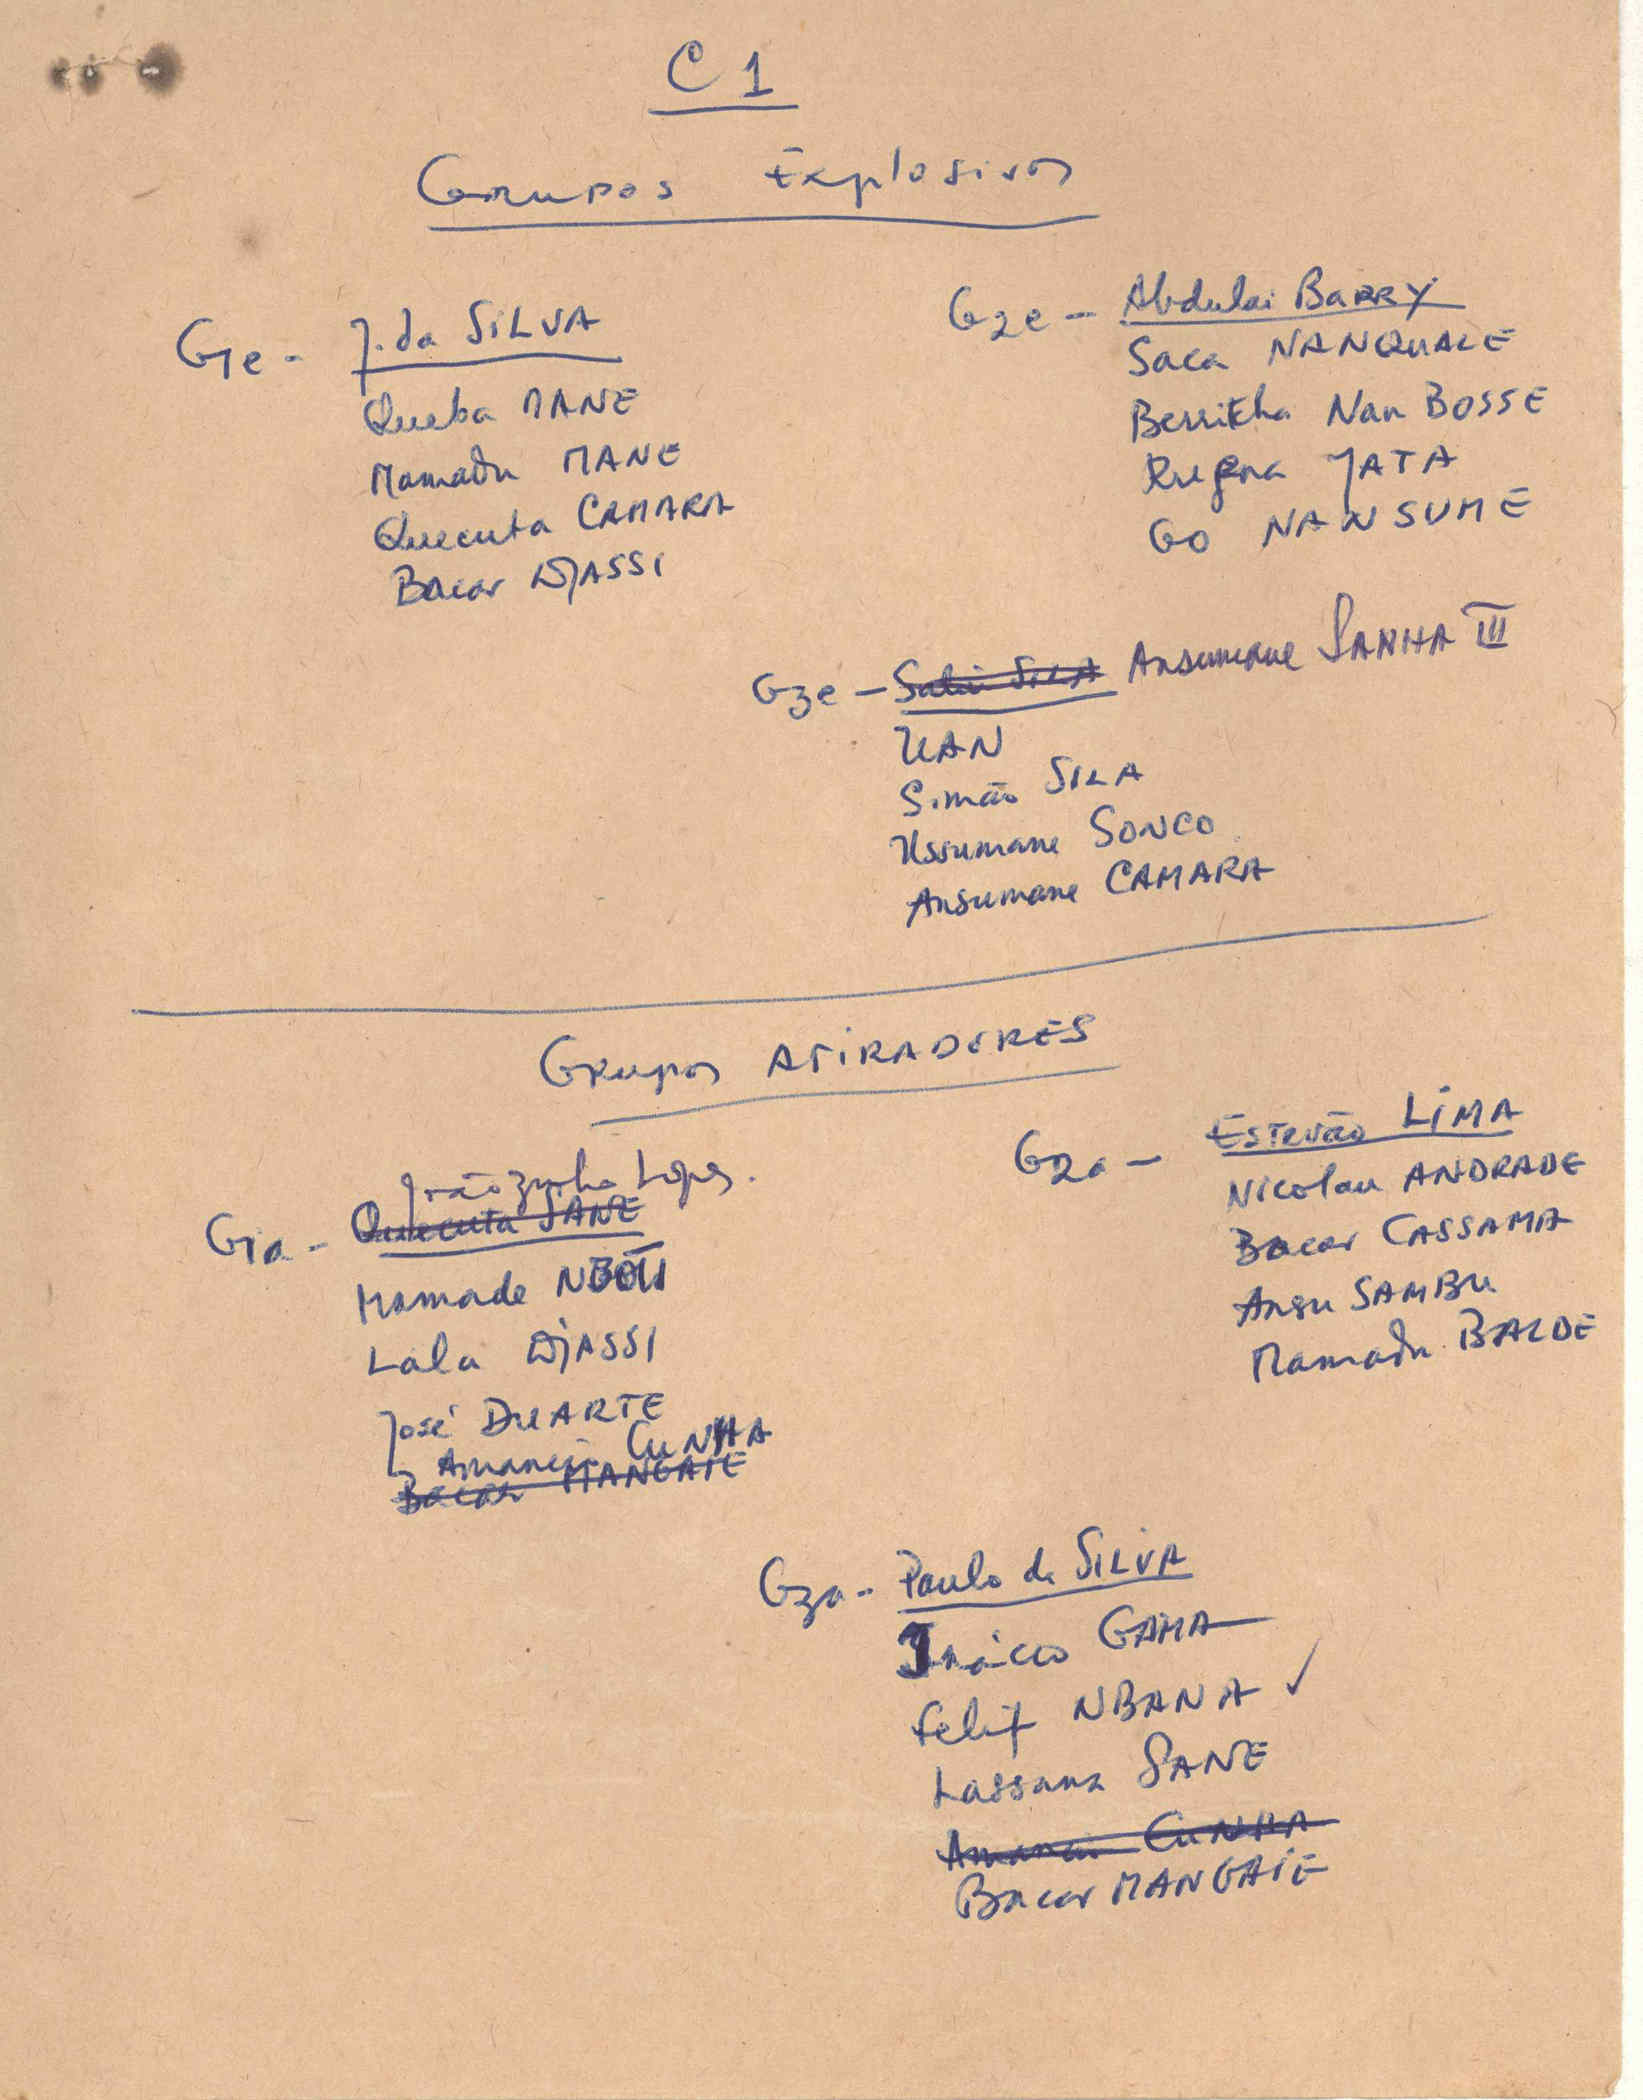 C1
Grupos Explosivos
G1e - J. da SiLVA
Queba MANE
Mamadu MANE
Quecuta CAMARA
Bacar DJASSI
G2e - Abdulai BARRY
Saca NANQUALE
Berritha Nan BOSSE
JATA
GO NANSUME
G3e - Salui SILA Ansumane SANHA III
UAN
Simão SILA
Ussumane SONCO
Ansumane CAMARA
Grupos ATiRADORES
Joãozinho Lopes.
G1a - Quecuta SANE
Mamade
Lala DJASSI
José DUARTE
Amancio CUNHA
Bacar MANGAIE
G2a - ESTEVão LiMA
Nicolau ANDRADE
Bacar CASSAMA
Ansu SAMBU
Mamadu BALDE
G3a - Paulo da SiLVA
Inácio GAMA
Felix NBANA ✓
Lassana SANE
Amancio CUNHA
Bacar MANGAIE